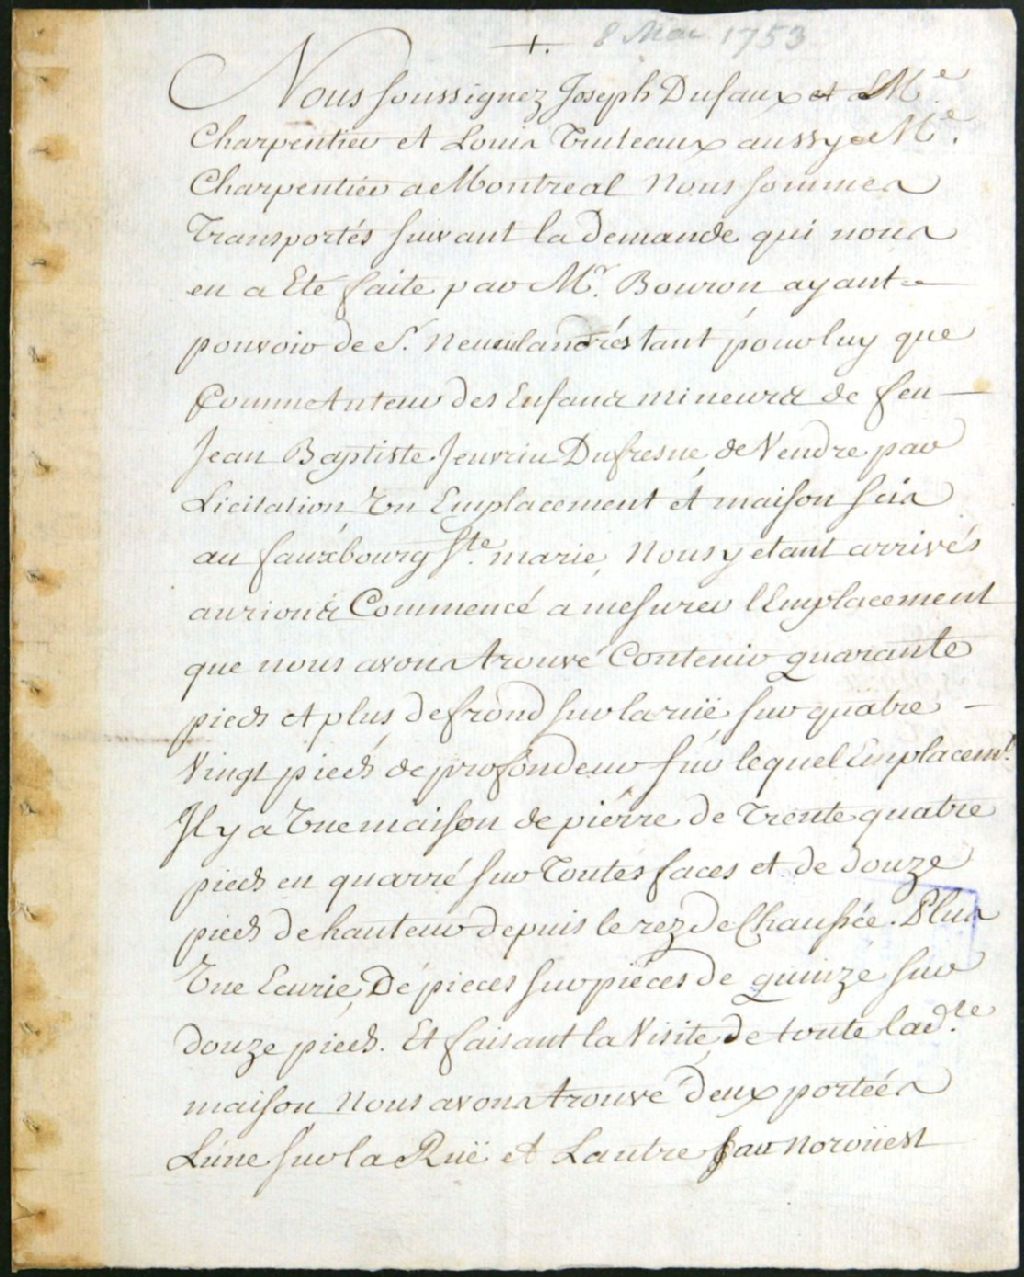 +. 8 Mai 1753
Nous soussignez Joseph Dufaux et Me.
Charpentier et Louis Truteaux aussy Me.
Charpentier a Montreal Nous sommes
Transportés suivant la demande qui nous
en a Eté faite par Mr. Bouron ayant
pouvoir de Sr. tant pour luy que
des Enfans mineurs de feu
Jean Baptiste Jeuvrin Dufresne de Vendre par
Licitation Un Emplacement et maison scis
au fauxbourg Ste. marie, Nous y etant arrivés
aurions Commencé a mesurer l'Emplacement
que nous avons trouvé Contenir quarante
pieds et plus de frond sur la ruë sur quatre
Vingt pieds de profondeur sur lequel Emplacemt.
Il y a Une maison de pierre de Trente quatre
pieds en quarré sur Toutes faces et de douze
pieds de hauteur depuis le rez de Chaussée. Plus
Une Ecurie De pieces sur pieces de quinze sur
douze pieds. Et faisant la Visite de toute lade.
maison Nous avons trouvé deux portées
L'une sur la Ruë et Lautre au Noroüest